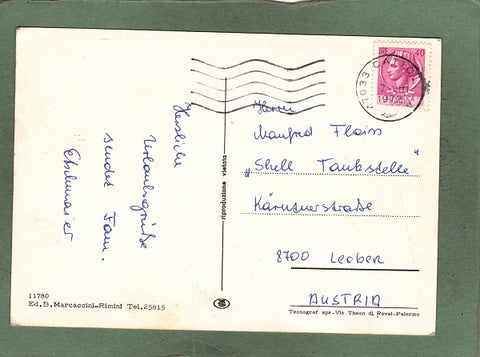 40
47033 CATTOLICA
1972
Herzliche
Urlaubsgrüße
sendet Fam.
Herrn
Manfred Floiss
„Shell Tankstelle"
Kärntnerstraße
8700 Leoben
AUSTRIA
riproduzione vietata
11780
Ed. B. Marcaccini-Rimini Tel. 25815
Tecnograf spa-Via Thaon di, Revel-Palermo